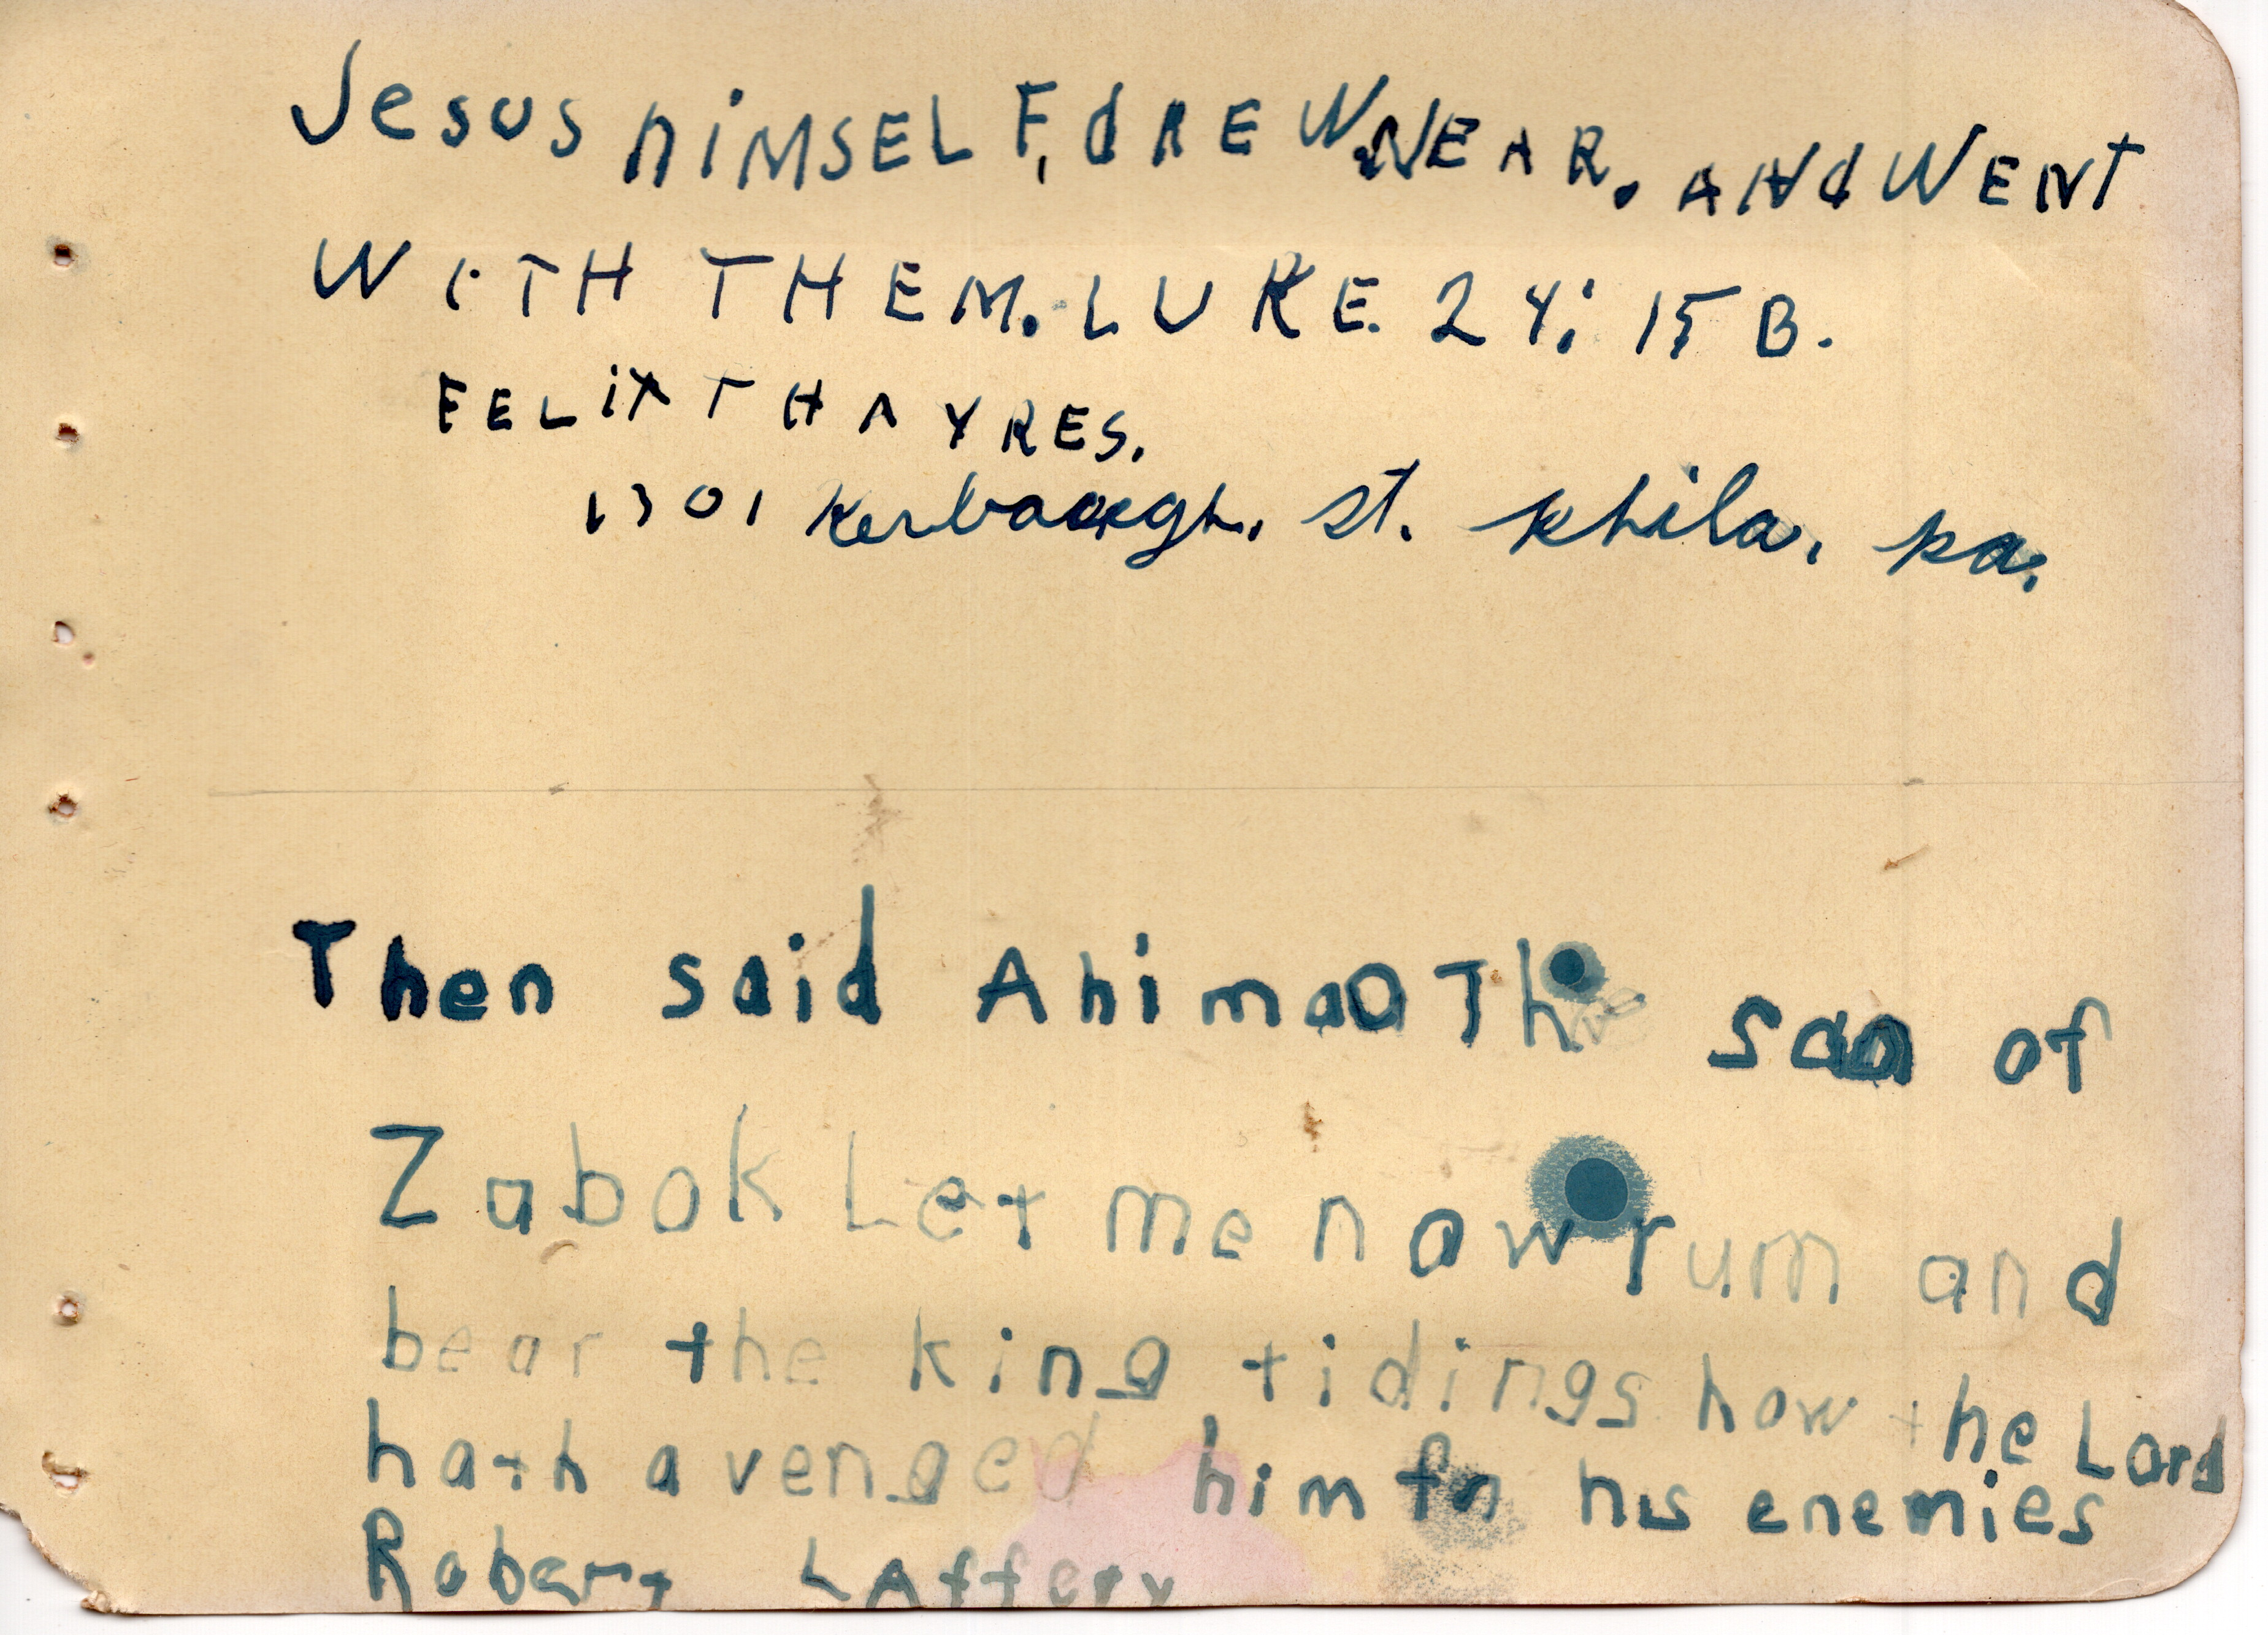 Jesus hiMSELF, dREW NEAR. ANd WENT
WITH THEM. LUKE. 24: 15 B.
FELiX THAYRES.
1301 Kerbaugh. st. phila. pa.
Then said AhimaaTh son of
Zabok Let me now rum and
bear the king tidings how the Lord
hath avenged him fn his enemies
Robert LAffery